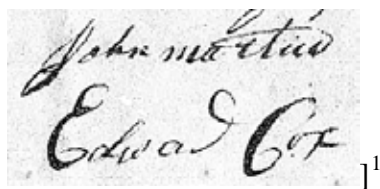 John martin
Edward Cox
]1